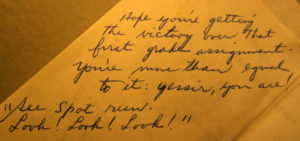 Hope you're getting
the victory over that
first grade assignment.
You're more than equal
to it: yessir, you are!
"See Spot run.
Look! Look! Look!"